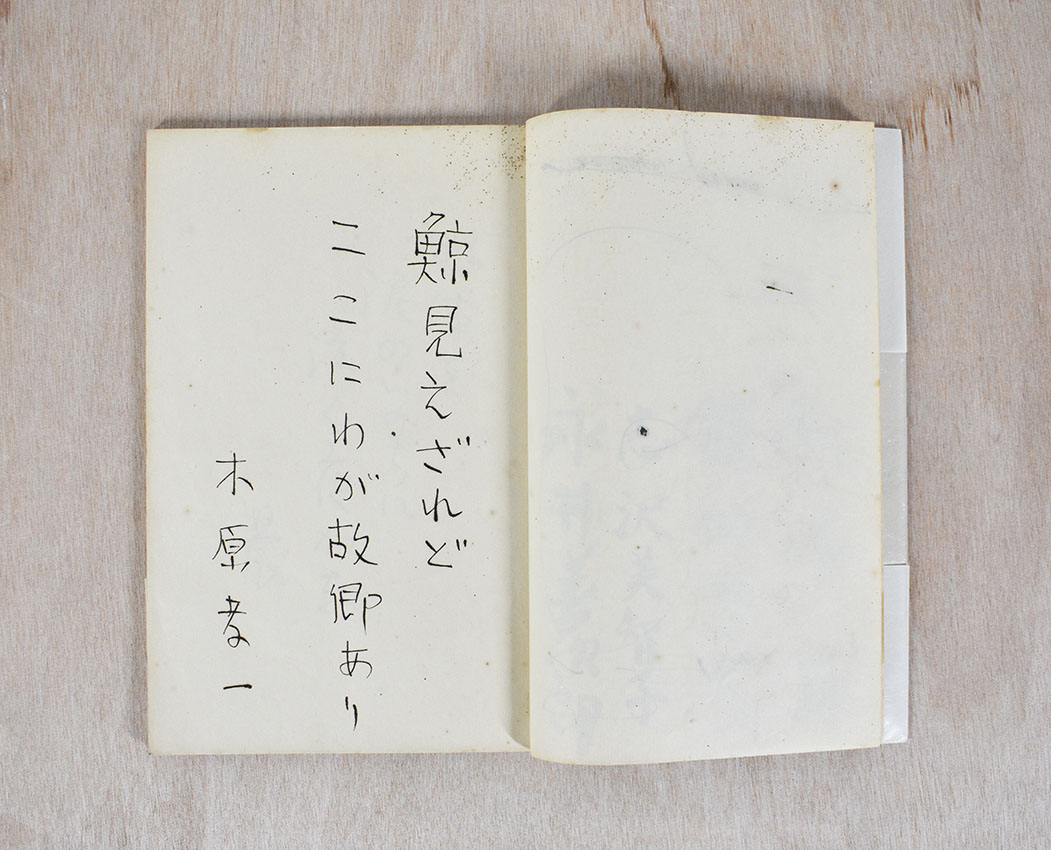 鯨見えざれど
ここにわが故郷あり
木原孝一